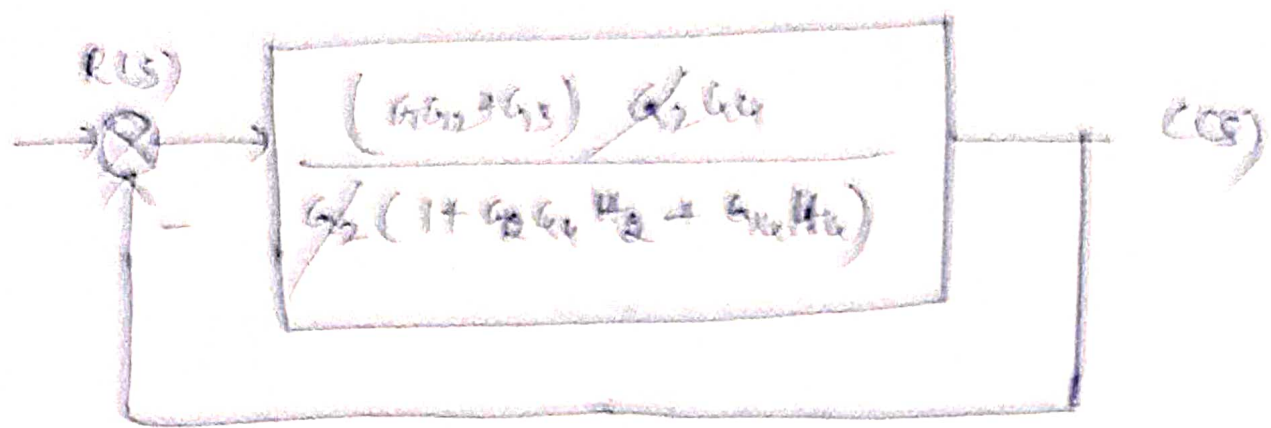 R(S)
(G1G2 + G3) G2 G4
C(S)
-
G2 (1 + G2 G4 H2 + G4 H1)